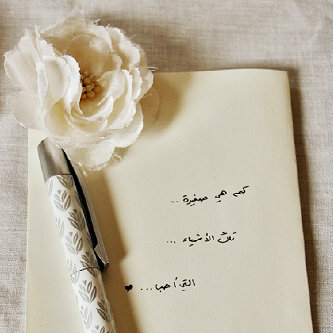 كم هي صغيرة ..
تلك الأشياء ...
التي أحبها ...